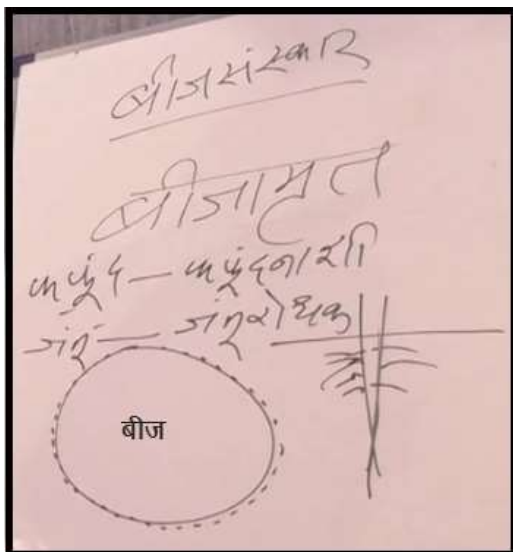 बीजसंस्कार
बीजामृत
फफूंद — फफूंदनाशी
जंतु — जंतूरोधक
बीज